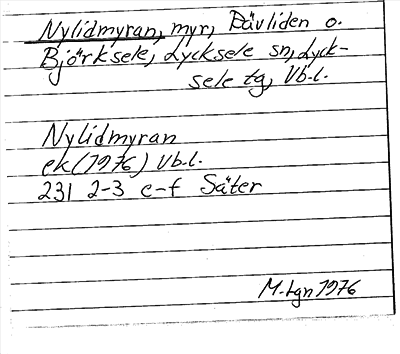 Nylidmyran, myr, Bävliden o.
Björksele, Lycksele sn, Lyck-
sele tg, Vb.l.
Nylidmyran
ek (1976) Vb.l.
231 2-3 e-f Säter
M. Lgn 1976